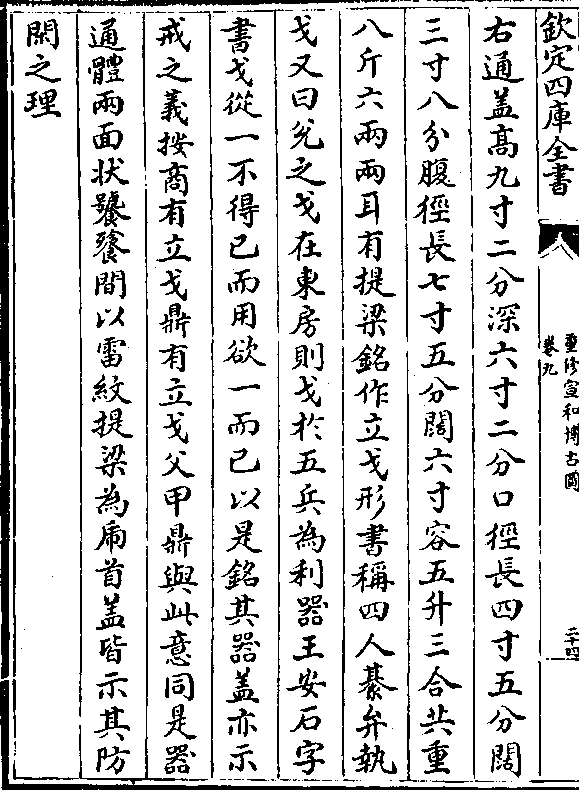 欽定四庫全書
重修宣和博古圖
卷九
二十四
右通盖髙九寸二分深六寸二分口徑長四寸五分闊
三寸八分腹徑長七寸五分闊六寸容五升三合共重
八斤六兩兩耳有提梁銘作立戈形書稱四人綦弁執
戈又曰兊之戈在東房則戈於五兵為利器王安石字
書戈從一不得已而用欲一而已以是銘其器盖亦示
戒之義按商有立戈鼎有立戈父甲鼎與此意同是器
通體兩面状饕餮間以雷紋提梁為甪首盖皆示其防
閑之理